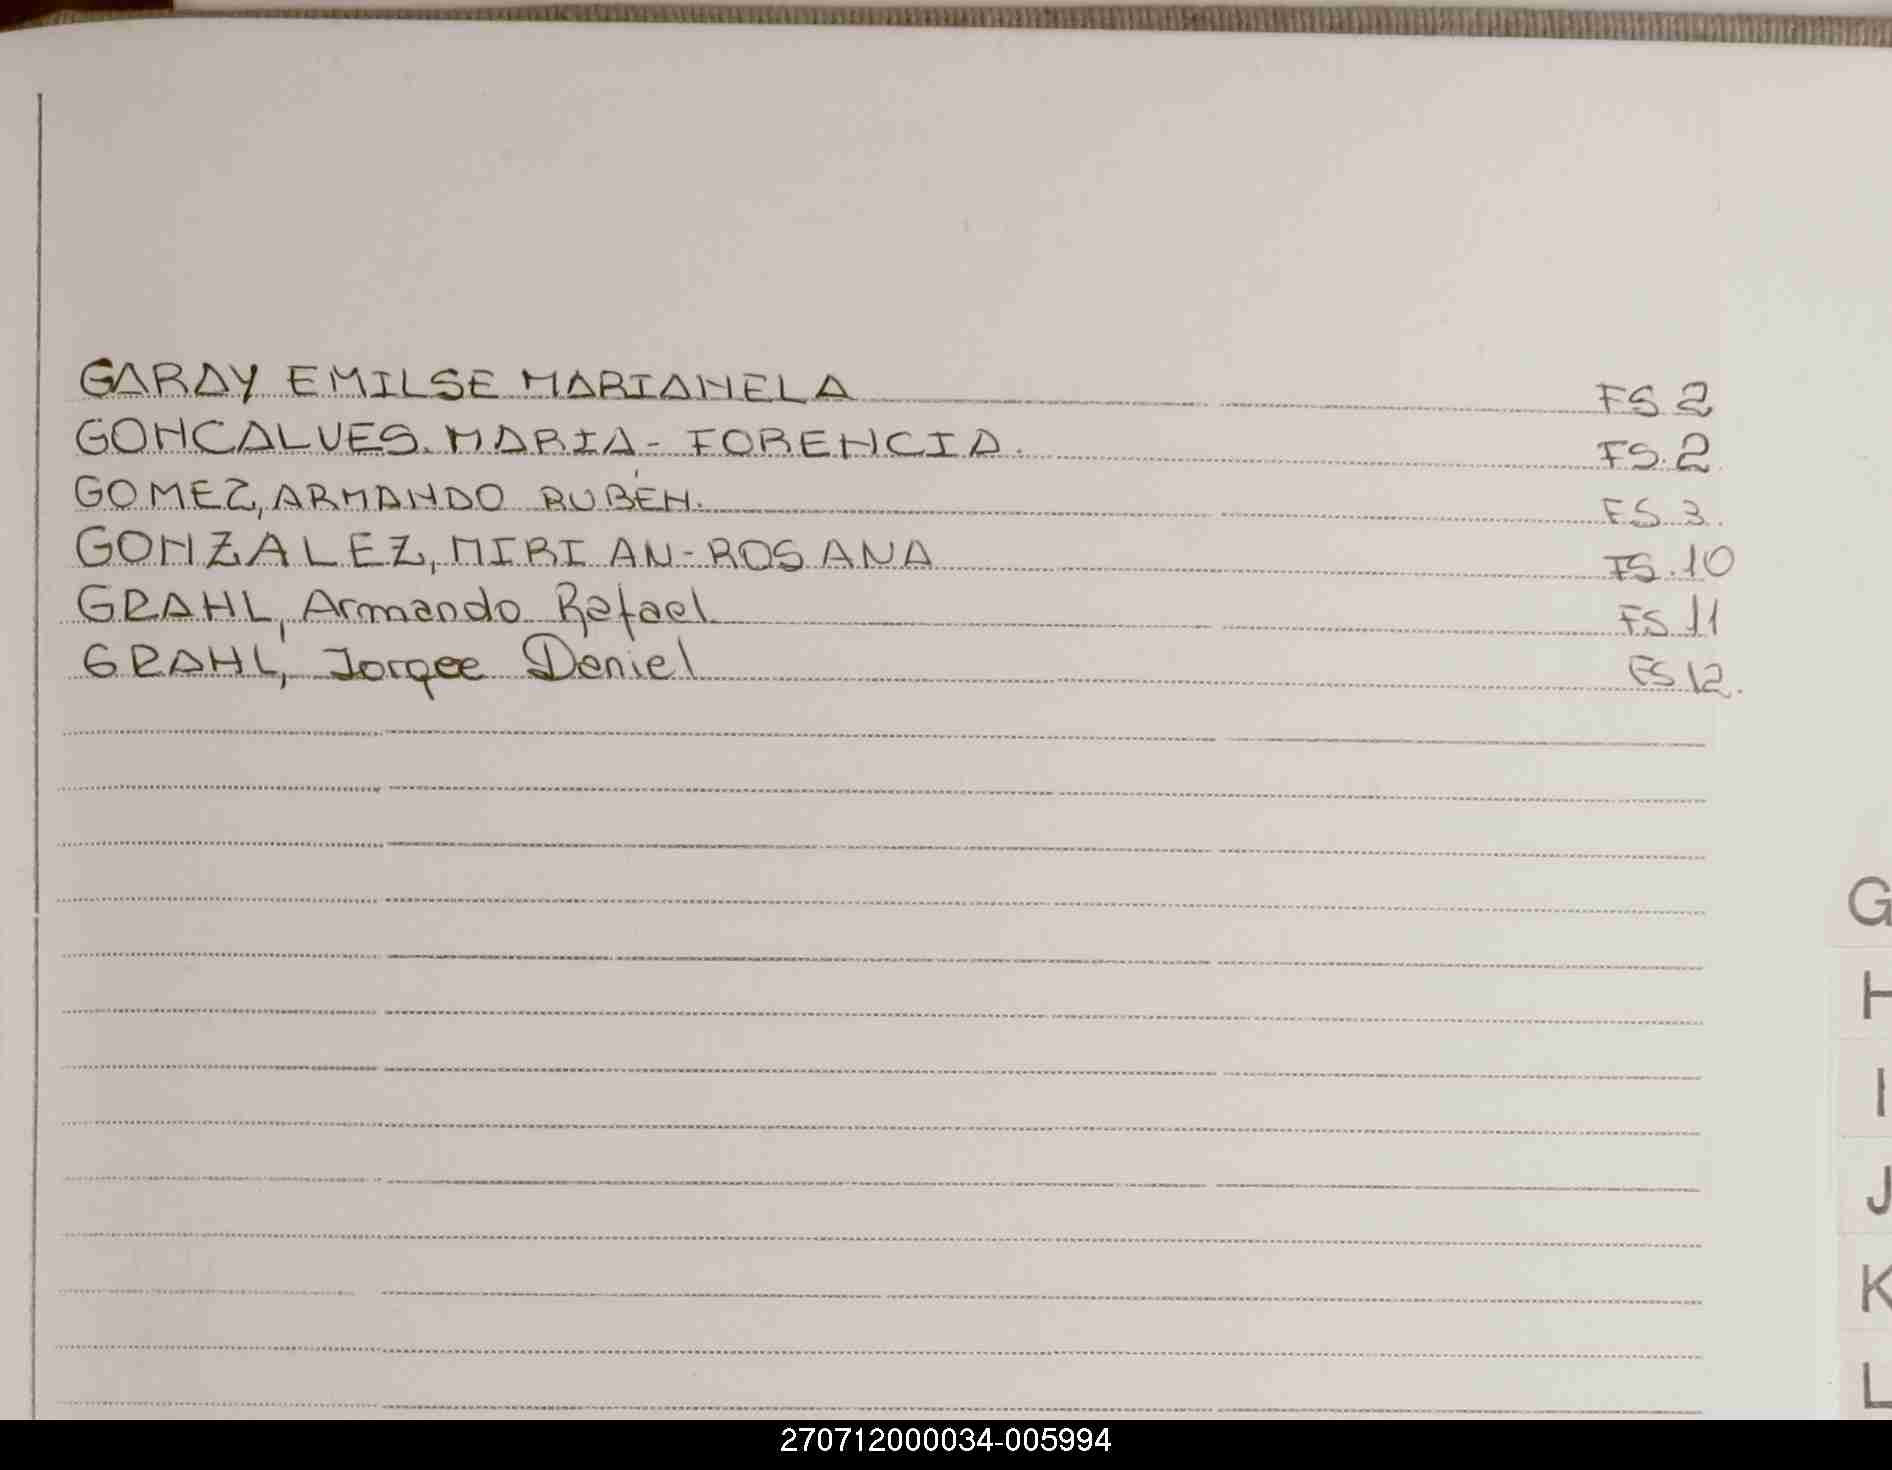 GARAY EMILSE MARIANELA FS.2
GONCALVES. MARIA - FORENCIA. FS.2
GOMEZ, ARMANDO RUBÉN. FS 3.
GONZALEZ, MIRIAN-ROSANA FS.10
GRAHL, Armando Rafael FS 11
GRAHL, Jorgee Daniel FS 12.
G
H
I
J
K
L
270712000034-005994